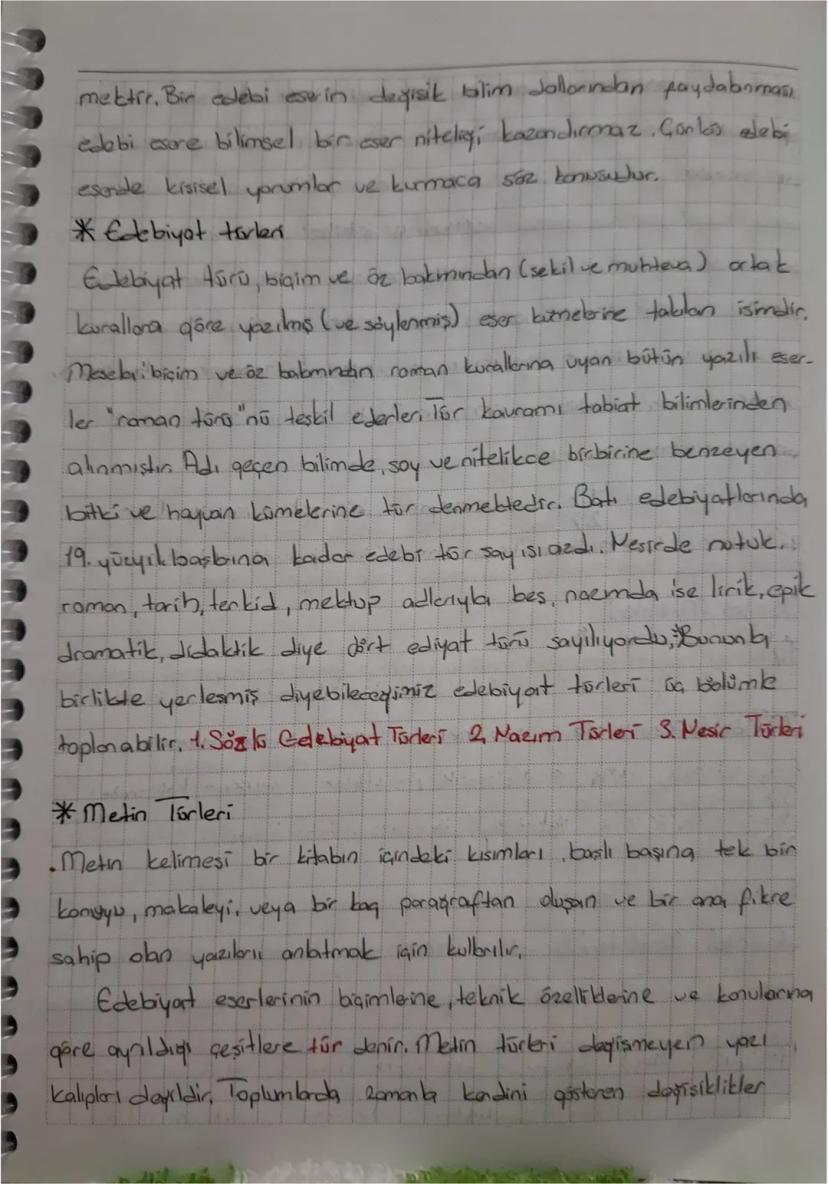 mektir. Bir edebi eserin değişik bilim dallarından faydalanması
edebi esere bilimsel bir eser niteliği kazandırmaz. Çünkü edebi
eserde kişisel yorumlar ve kurmaca söz konusudur.
* Edebiyat türleri
Edebiyat türü, biçim ve öz bakımından (şekil ve muhteva) ortak
kurallara göre yazılmış (ve söylenmiş) eser kümelerine takılan isimdir.
Mesela: biçim ve öz bakımından roman kurallarına uyan bütün yazılı eser-
ler "roman türü"nü teşkil ederler. Tür kavramı tabiat bilimlerinden
alınmıştır. Adı geçen bilimde, soy ve nitelikce birbirine benzeyen
bitki ve hayvan kümelerine tür denmektedir. Batı edebiyatlarında
19. yüzyıl başlarına kadar edebi tür sayısı azdı. Nesirde nutuk,
roman, tarih, tenkid, mektup adlarıyla beş, nazımda ise lirik, epik
dramatik, didaktik diye dört ediyat türü sayılıyordu, Bununla
birlikte yerleşmiş diyebileceğimiz edebiyat türleri üç bölümle
toplanabilir. 1. Sözlü Edebiyat Türleri 2. Nazım Türleri 3. Nesir Türleri
* Metin Türleri
. Metin kelimesi bir kitabın içindeki kısımları, başlı başına tek bir
konuyu, makaleyi, veya bir kaç paragraftan oluşan ve bir ana fikre
sahip olan yazıları anlatmak için kullanılır.
Edebiyat eserlerinin biçimlerine, teknik özelliklerine ve konularına
göre ayrıldığı çeşitlere tür denir. Metin türleri değişmeyen yazı
kalıpları değildir. Toplumlarda zamanla kendini gösteren değişiklikler